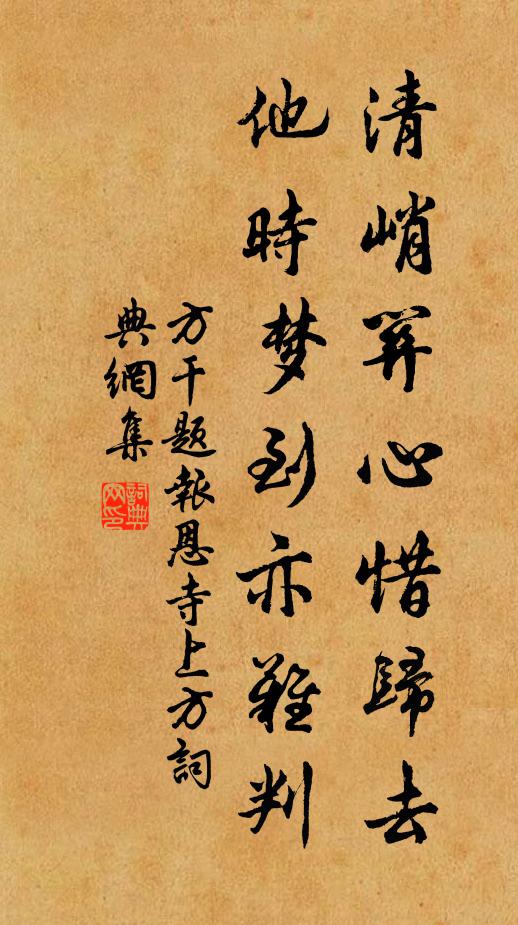 清峭關心惜歸去
他時梦到亦難判
方干題報恩寺上方詞
典網集
詞典
网印